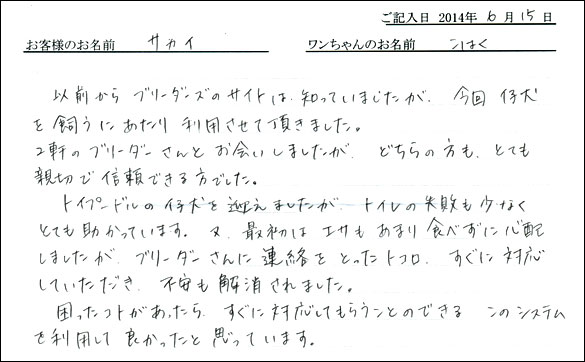 ご記入日 2014年 6月 15日
お客様のお名前 サカイ ワンちゃんのお名前 こはく
以前から ブリーダーズのサイトは、知っていましたが、今回 仔犬
を 飼うに あたり 利用させて頂きました。
2軒の ブリーダーさんと お会いしましたが、どちらの方も、とても
親切で 信頼できる方でした。
トイプードルの 仔犬を 迎えましたが、トイレの 失敗も 少なく
とても 助かっています。又、最初は エサも あまり 食べずに 心配
しましたが、ブリーダーさんに 連絡を とったトコロ、すぐに 対応
していただき、不安も 解消されました。
困ったコトがあったら、すぐに 対応してもらうことのできる このシステム
を利用して 良かったと 思っています。